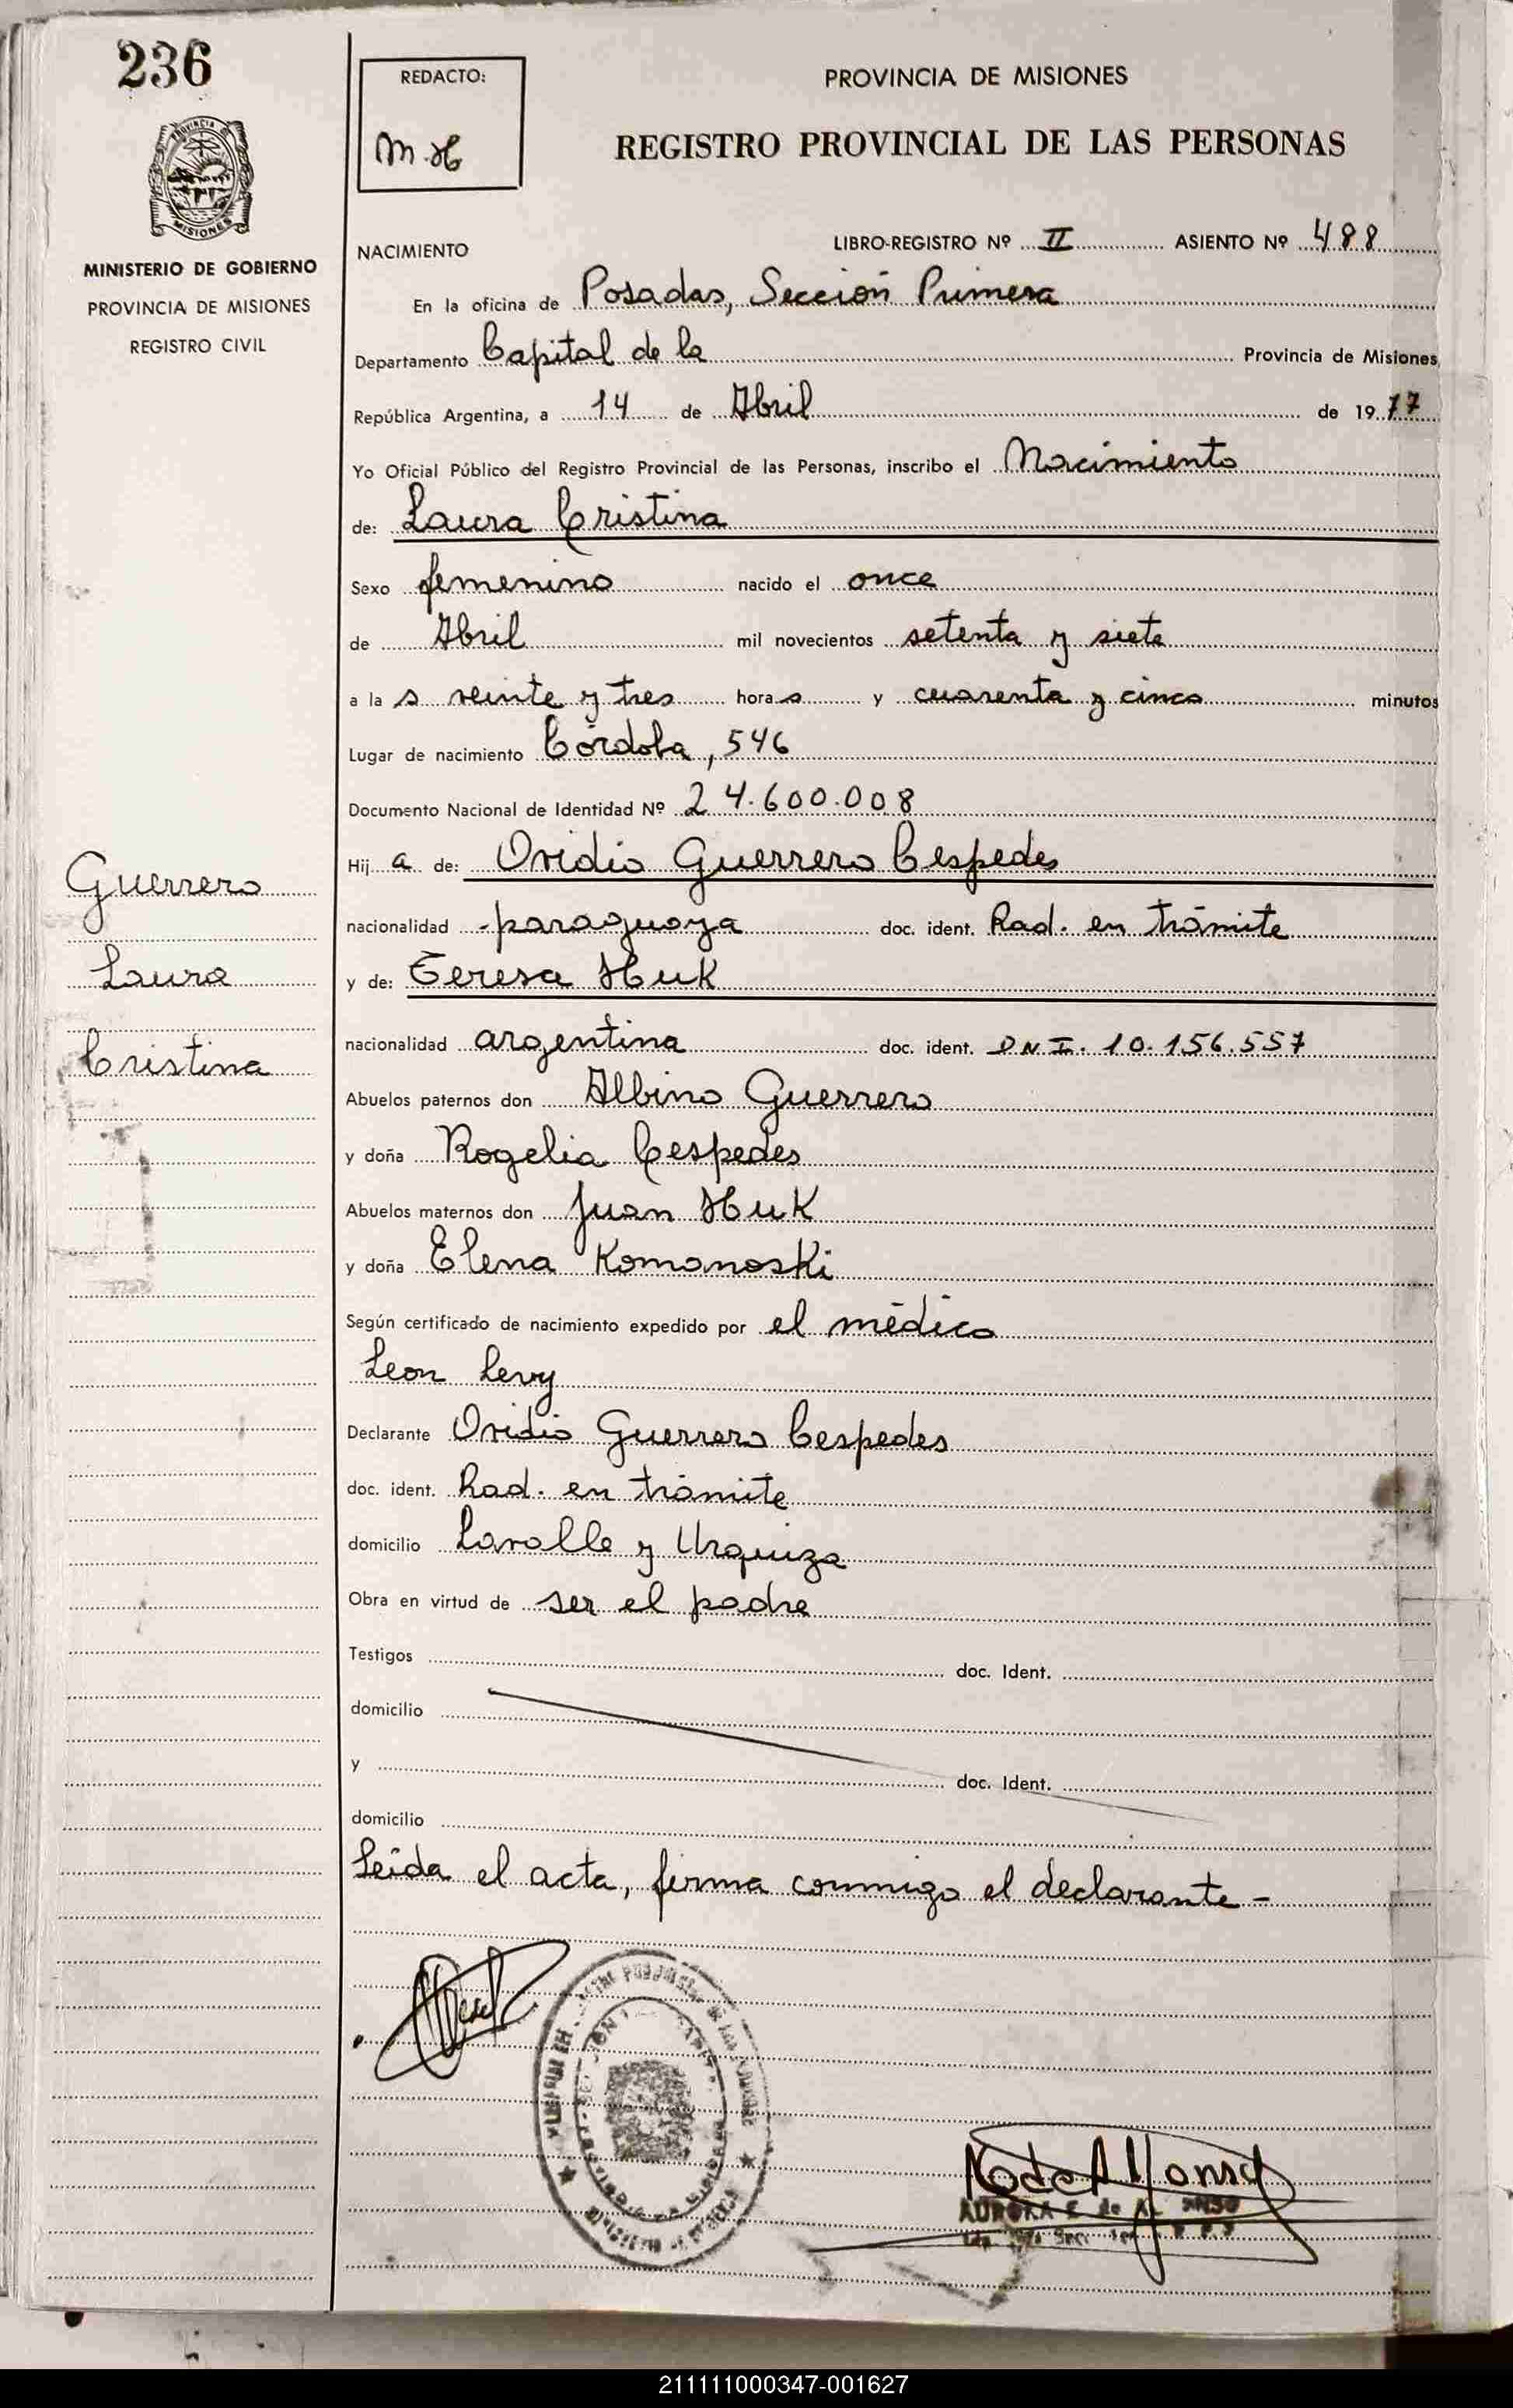 236
REDACTO:
M.H
PROVINCIA DE MISIONES
REGISTRO PROVINCIAL DE LAS PERSONAS
MISIONES
MINISTERIO DE GOBIERNO
PROVINCIA DE MISIONES
REGISTRO CIVIL
NACIMIENTO
LIBRO-REGISTRO Nº II ASIENTO Nº 488
En la oficina de Posadas, Sección Primera
Departamento Capital de la Provincia de Misiones
República Argentina, a 14 de Abril de 1977
Yo Oficial Público del Registro Provincial de las Personas, inscribo el Nacimiento
de: Laura Cristina
Sexo femenino nacido el once
de Abril mil novecientos setenta y siete
a la s veinte y tres hora s y cuarenta y cinco minutos
Lugar de nacimiento Córdoba, 546
Documento Nacional de Identidad Nº 24.600.008
Hij a de: Ovidio Guerrero Cespedes
Guerrero
nacionalidad paraguaya doc. ident. Rad. en trámite
Laura
y de: Teresa Huk
Cristina
nacionalidad argentina doc. ident. D.N.I. 10.156.557
Abuelos paternos don Albino Guerrero
y doña Rogelia Cespedes
Abuelos maternos don Juan Huk
y doña Elena Komanoski
Según certificado de nacimiento expedido por el médico
Leon Levy
Declarante Ovidio Guerrero Cespedes
doc. ident. Rad. en trámite
domicilio Lavalle y Urquiza
Obra en virtud de ser el padre
Testigos doc. Ident.
domicilio
y doc. Ident.
domicilio
Leída el acta, firma conmigo el declarante -
AURORA E. de
211111000347-001627